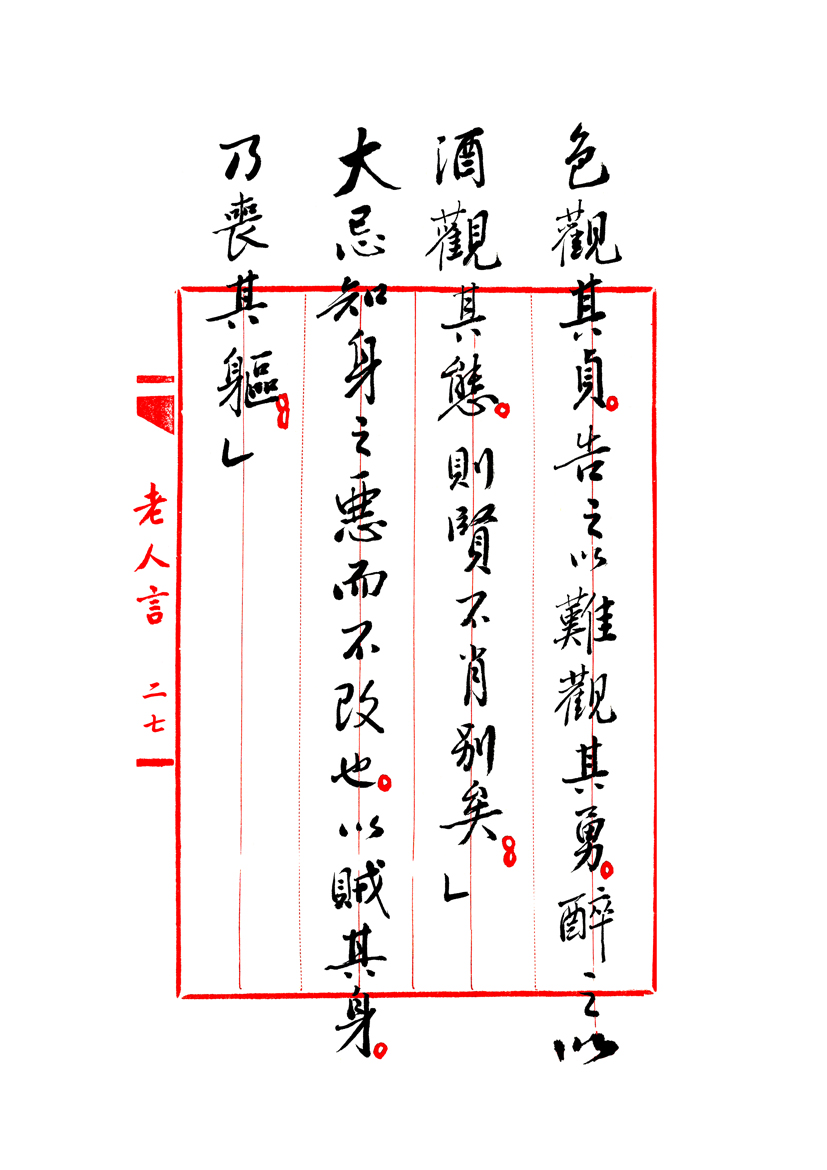 色觀其貞。告之以難觀其勇。醉之以
酒觀其態。則賢不肖別矣。」
大忌知身之惡而不改也。以賊其身。
乃喪其軀。」
老人言 二七